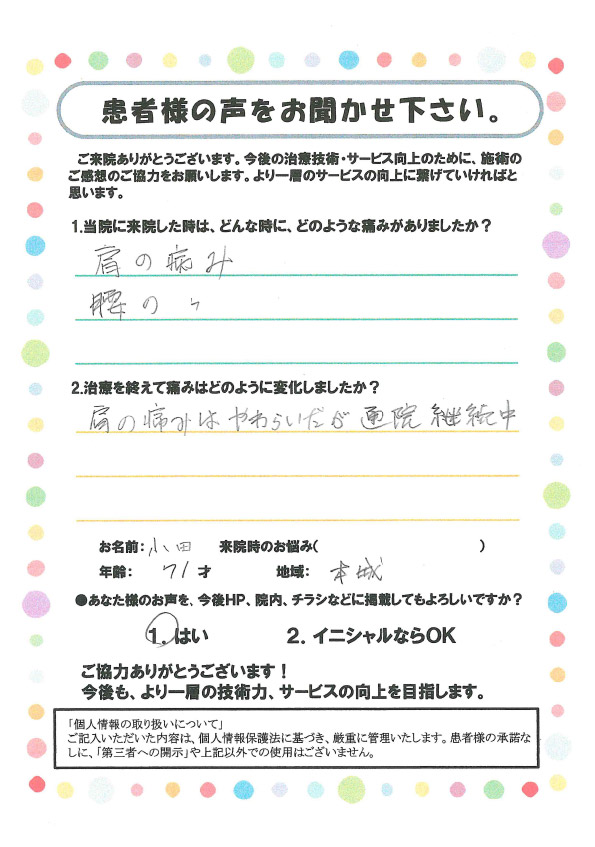 患者様の声をお聞かせ下さい。
ご来院ありがとうございます。今後の治療技術・サービス向上のために、施術の
ご感想のご協力をお願いします。より一層のサービスの向上に繋げていければと
思います。
1.当院に来院した時は、どんな時に、どのような痛みがありましたか？
肩の痛み
腰の 〃
2.治療を終えて痛みはどのように変化しましたか？
肩の痛みはやわらいだが通院継続中
お名前：小田 来院時のお悩み( )
年齢： 71才 地域： 本城
●あなた様のお声を、今後HP、院内、チラシなどに掲載してもよろしいですか？
1. はい 2. イニシャルならOK
ご協力ありがとうございます！
今後も、より一層の技術力、サービスの向上を目指します。
「個人情報の取り扱いについて」
ご記入いただいた内容は、個人情報保護法に基づき、厳重に管理いたします。患者様の承諾な
しに、「第三者への開示」や上記以外での使用はございません。